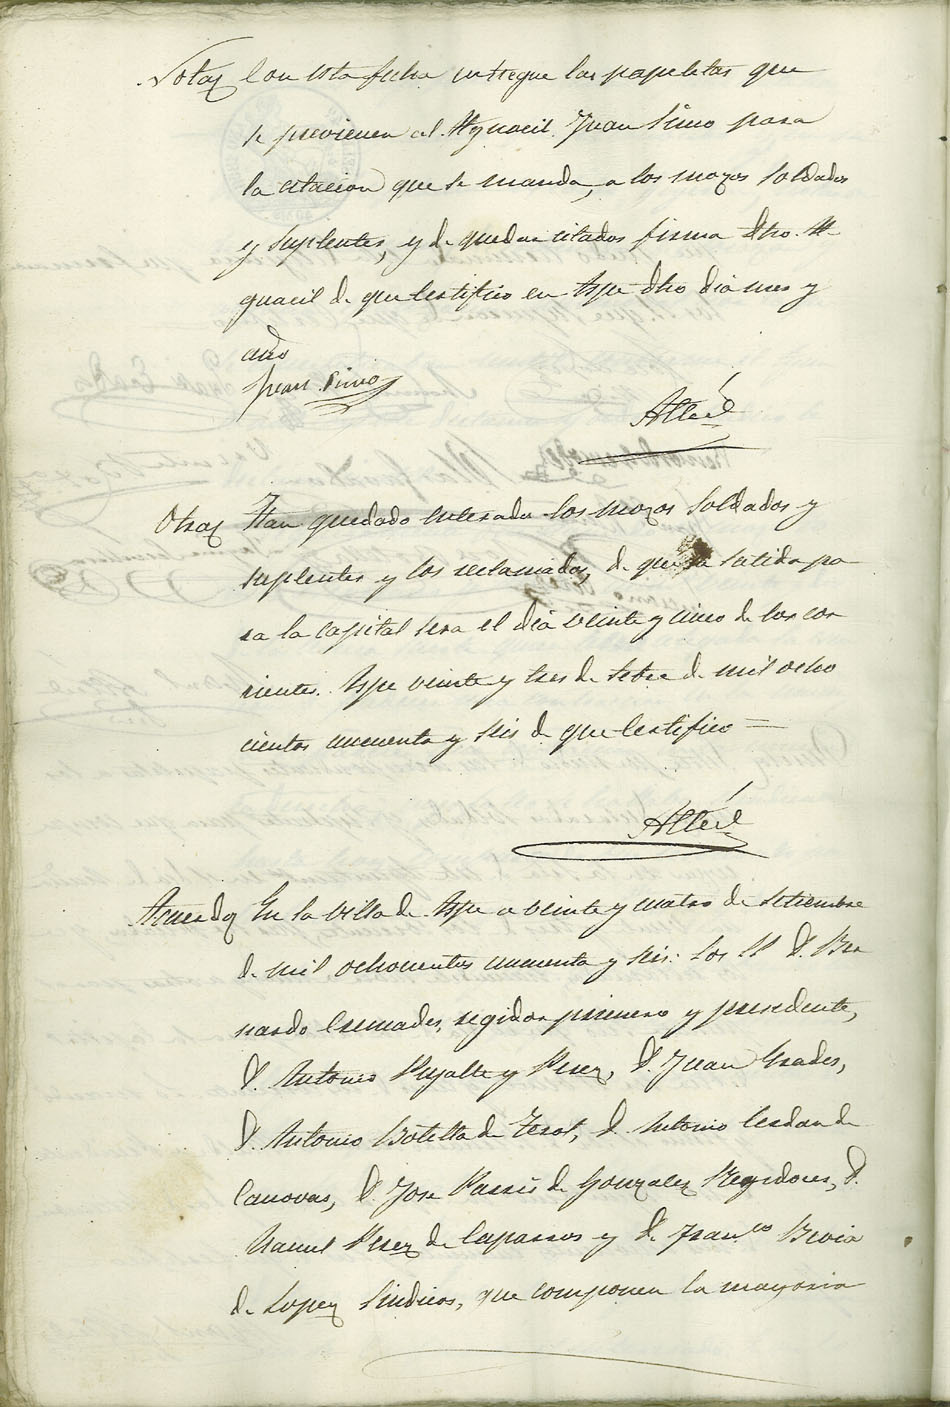 Nota Con esta fecha entregue las papeletas que
se previenen al Alguacil Juan Simo para
la citacion que se manda, a los mozos soldados
y suplentes, y de quedar citados firma dho. Al-
guacil de que certifico en Aspe dho dia mes y
año
Juan Simo
Otra Han quedado enterados los mozos soldados y
suplentes y los reclamados, de que su salida pa
ra la capital sera el dia veinte y cinco de los cor
rientes. Aspe veinte y tres de Setbre de mil ocho
cientos cincuenta y seis de que certifico =
Acuerdo En la Villa de Aspe a veinte y cuatro de Setiembre
de mil ochocientos cincuenta y seis: Los SS D. Ber
nardo Cremades, regidor primero y presidente,
D. Antonio Pujalte y Perez, D. Juan Grades,
D. Antonio Botella de Terol, D. Antonio Cerdan de
Canovas, D. Jose Pastor de Gonzalez Regidores, D.
Manuel Perez de Caparros y D. Franco Bevia
de Lopez Sindicos, que componen la mayoria